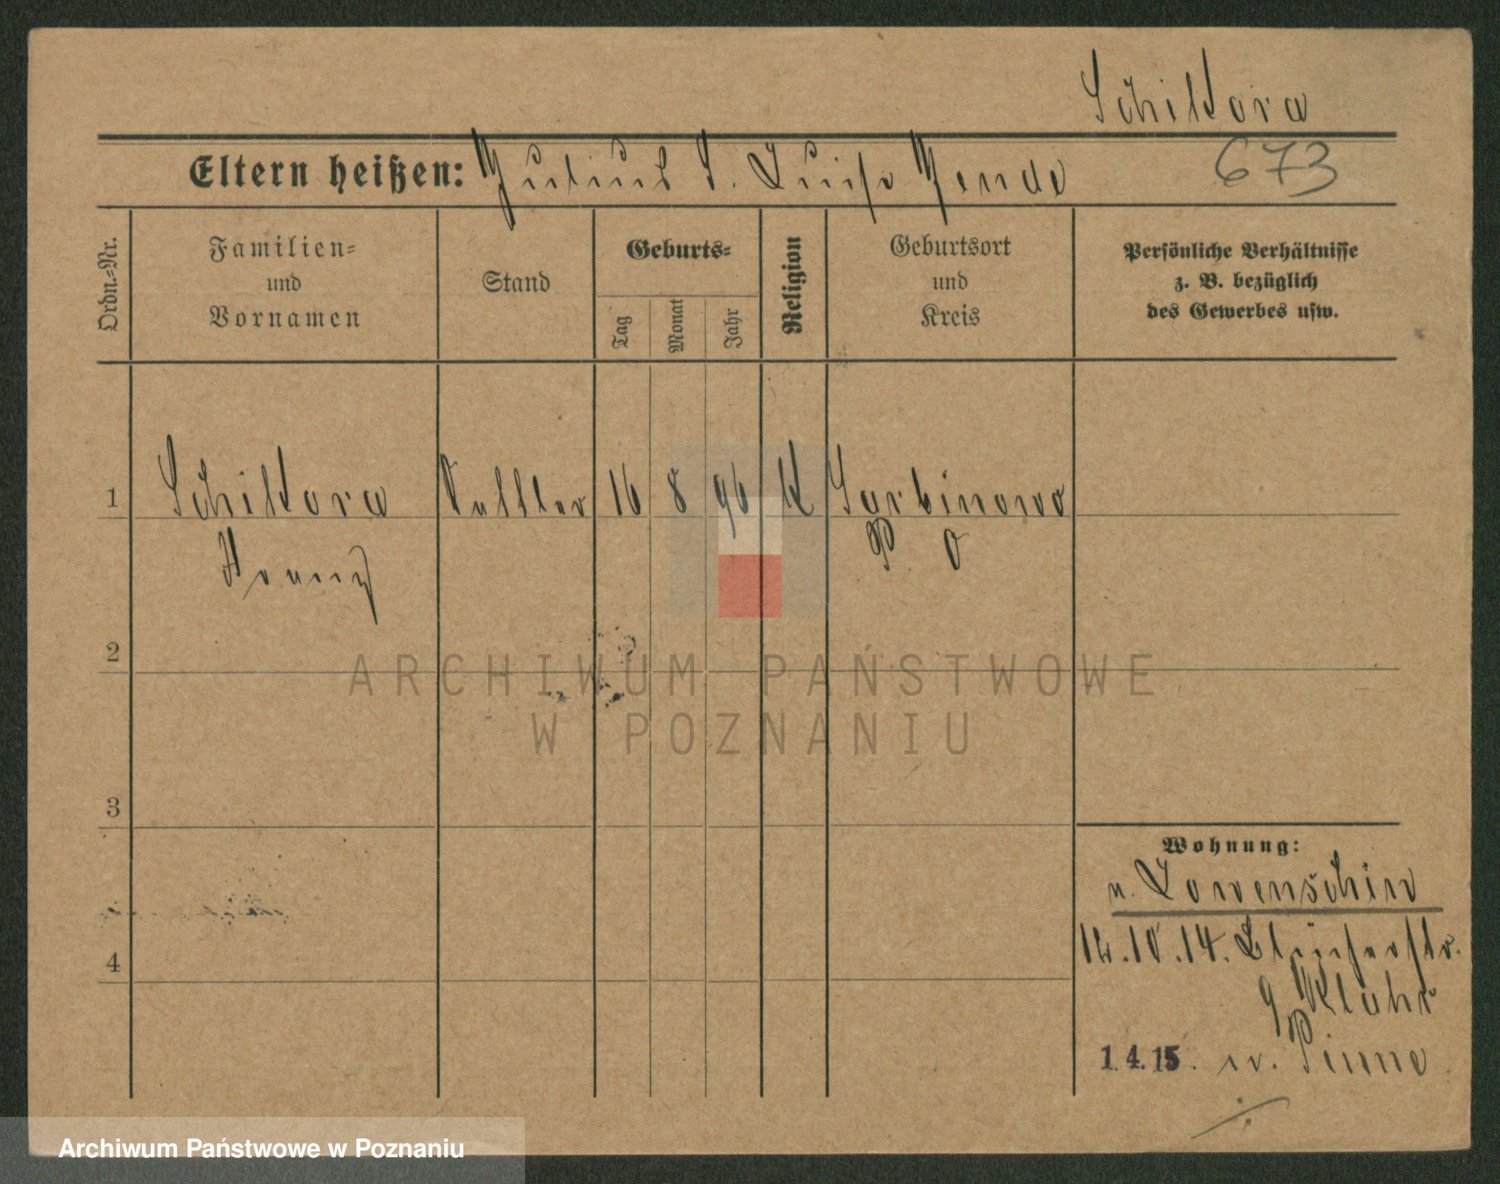 Schiltora
Eltern heißen: Julius S. Luise Mende 673
Ordn.=Nr.
Familien=
und
Vornamen
Stand
Geburts=
Tag
Monat
Jahr
Religion
Geburtsort
und
Kreis
Persönliche Verhältnisse
z. B. bezüglich
des Gewerbes usw.
1 Schiltora Kellner 16 8 96 K Sarbinowo
Franz P. O
2
3
4
Wohnung:
n.
12.10.14. Blücherstr.
9
1.4.15. n. Pinne
ARCHIWUM PAŃSTWOWE
W POZNANIU
Archiwum Państwowe w Poznaniu